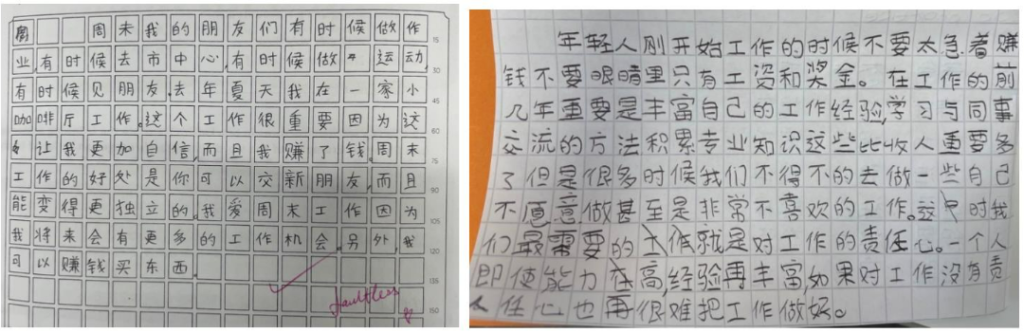 周末我的朋友们有时候做作
业,有时候去市中心,有时候做运动,
有时候见朋友.去年夏天我在一家小
咖啡厅工作.这个工作很重要因为这
让我更加自信,而且我赚了钱.周末
工作的好处是你可以交新朋友,而且
能变得更独立的.我爱周末工作因为
我将来会有更多的工作机会.另外我
可以赚钱买东西.
faultless
15
30
45
60
75
90
105
120
135
150
年轻人刚开始工作的时候不要太急着赚
钱不要眼睛里只有工资和奖金。在工作的前
几年重要是丰富自己的工作经验,学习与同事
交流的方法积累专业知识这些比收人重要多
了但是很多时候我们不得不的去做一些自己
不愿意做甚至是非常不喜欢的工作。这时我
们最需要的工作就是对工作的责任心。一个人
即使能力在高,经验再丰富,如果对工作没有责
任心也再很难把工作做好。